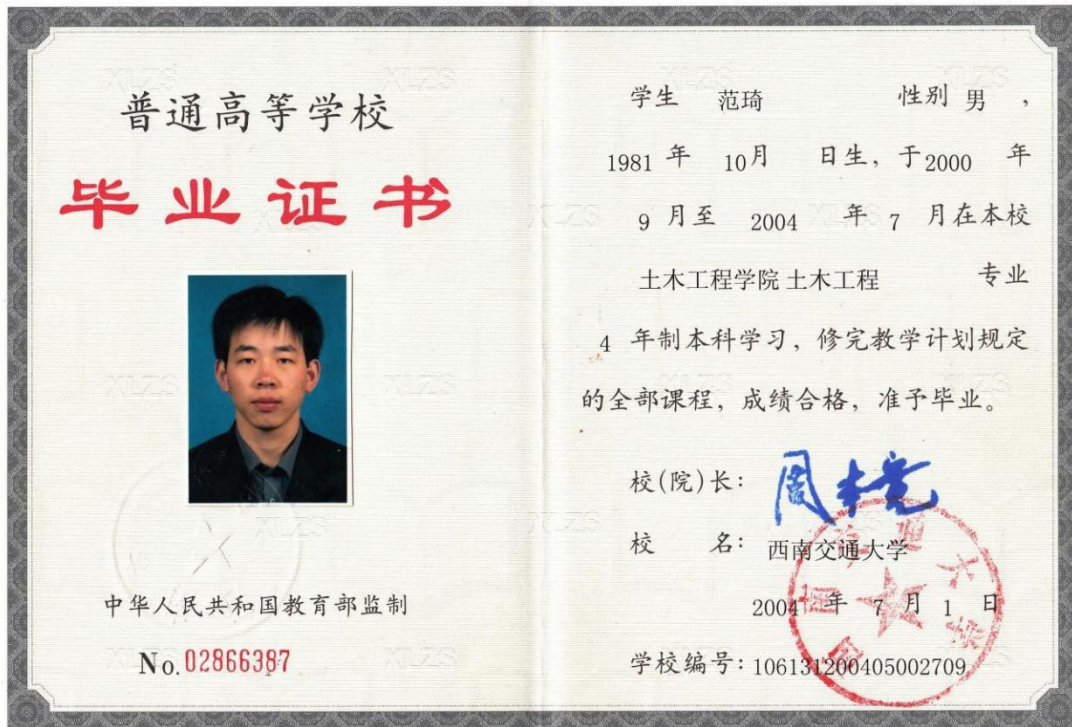 普通高等学校
毕业证书
中华人民共和国教育部监制
No. 02866387
学生 范琦 性别 男 ，
1981 年 10月 日生，于2000 年
9 月至 2004 年 7 月在本校
土木工程学院 土木工程 专业
4 年制本科学习，修完教学计划规定
的全部课程，成绩合格，准予毕业。
校(院)长：
校 名：西南交通大学
2004 年 7 月 1 日
学校编号：106131200405002709
西南交通大学
XLZS